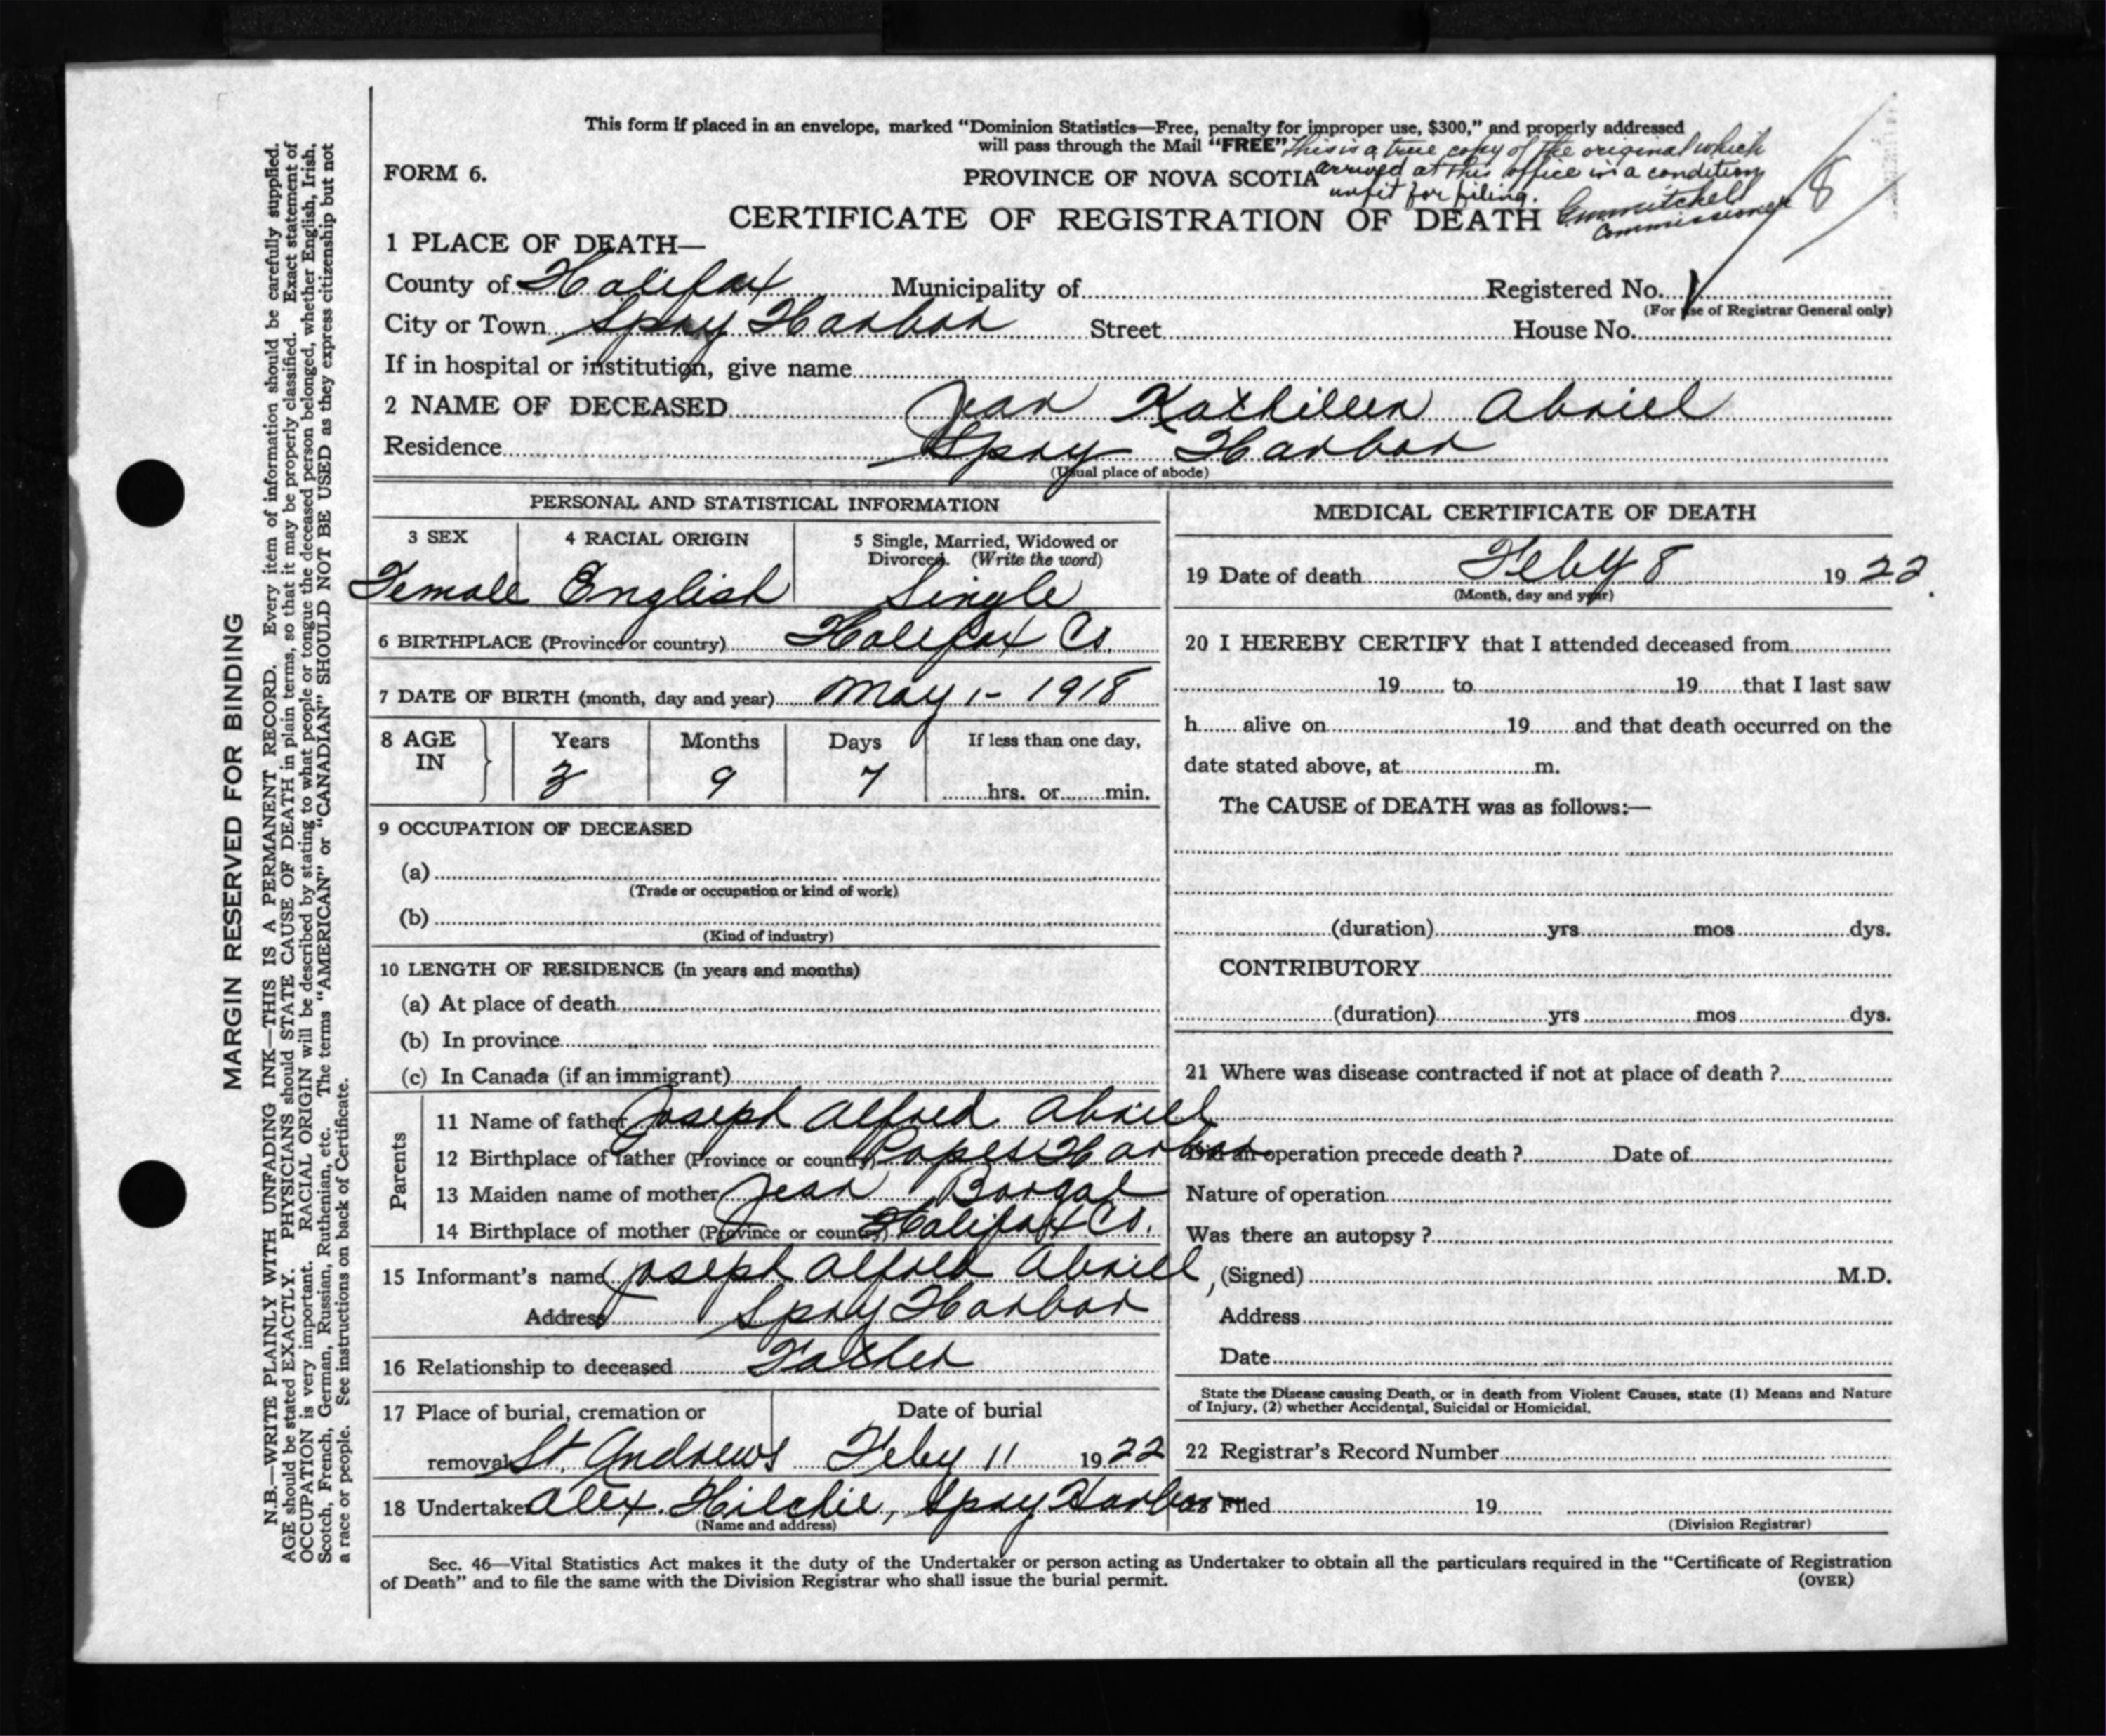 This form if placed in an envelope, marked "Dominion Statistics—Free, penalty for improper use, $300," and properly addressed
will pass through the Mail "FREE"
This is a true copy of the original which
arrived at this office in a condition
unfit for filing.
Commissioner
8
FORM 6.
PROVINCE OF NOVA SCOTIA
CERTIFICATE OF REGISTRATION OF DEATH
1 PLACE OF DEATH—
County of Halifax Municipality of Registered No.
(For use of Registrar General only)
City or Town Spry Harbor Street House No.
If in hospital or institution, give name
2 NAME OF DECEASED Jean Kathileen Abriel
Residence Spry Harbor
(Usual place of abode)
PERSONAL AND STATISTICAL INFORMATION
3 SEX 4 RACIAL ORIGIN 5 Single, Married, Widowed or
Divorced. (Write the word)
Female English Single
6 BIRTHPLACE (Province or country) Halifax Co.
7 DATE OF BIRTH (month, day and year) May 1 - 1918
8 AGE IN Years Months Days If less than one day,
3 9 7 hrs. or min.
9 OCCUPATION OF DECEASED
(a)
(Trade or occupation or kind of work)
(b)
(Kind of industry)
10 LENGTH OF RESIDENCE (in years and months)
(a) At place of death
(b) In province
(c) In Canada (if an immigrant)
Parents
11 Name of father Joseph Alfred Abriel
12 Birthplace of father (Province or country) Popes Harbor
13 Maiden name of mother Jean Borgal
14 Birthplace of mother (Province or country) Halifax Co.
15 Informant's name Joseph Alfred Abriel
Address Spry Harbor
16 Relationship to deceased Father
17 Place of burial, cremation or Date of burial
removal St. Andrews Feby 11 1922
18 Undertaker Alex. Hilchie, Spry Harbor
(Name and address)
MEDICAL CERTIFICATE OF DEATH
19 Date of death Feby 8 1922
(Month, day and year)
20 I HEREBY CERTIFY that I attended deceased from
19 to 19 that I last saw
h alive on 19 and that death occurred on the
date stated above, at m.
The CAUSE of DEATH was as follows:—
(duration) yrs mos dys.
CONTRIBUTORY
(duration) yrs mos dys.
21 Where was disease contracted if not at place of death ?
Did an operation precede death ? Date of
Nature of operation
Was there an autopsy ?
(Signed) M.D.
Address
Date
State the Disease causing Death, or in death from Violent Causes, state (1) Means and Nature
of Injury, (2) whether Accidental, Suicidal or Homicidal.
22 Registrar's Record Number
Filed 19
(Division Registrar)
Sec. 46—Vital Statistics Act makes it the duty of the Undertaker or person acting as Undertaker to obtain all the particulars required in the "Certificate of Registration
of Death" and to file the same with the Division Registrar who shall issue the burial permit.
(OVER)
MARGIN RESERVED FOR BINDING
N.B.—WRITE PLAINLY WITH UNFADING INK—THIS IS A PERMANENT RECORD. Every item of information should be carefully supplied.
AGE should be stated EXACTLY. PHYSICIANS should STATE CAUSE OF DEATH in plain terms, so that it may be properly classified. Exact statement of
OCCUPATION is very important. RACIAL ORIGIN will be described by stating to what people or tongue the deceased person belonged, whether English, Irish,
Scotch, French, German, Russian, Ruthenian, etc. The terms "AMERICAN" or "CANADIAN" SHOULD NOT BE USED as they express citizenship but not
a race or people. See instructions on back of Certificate.